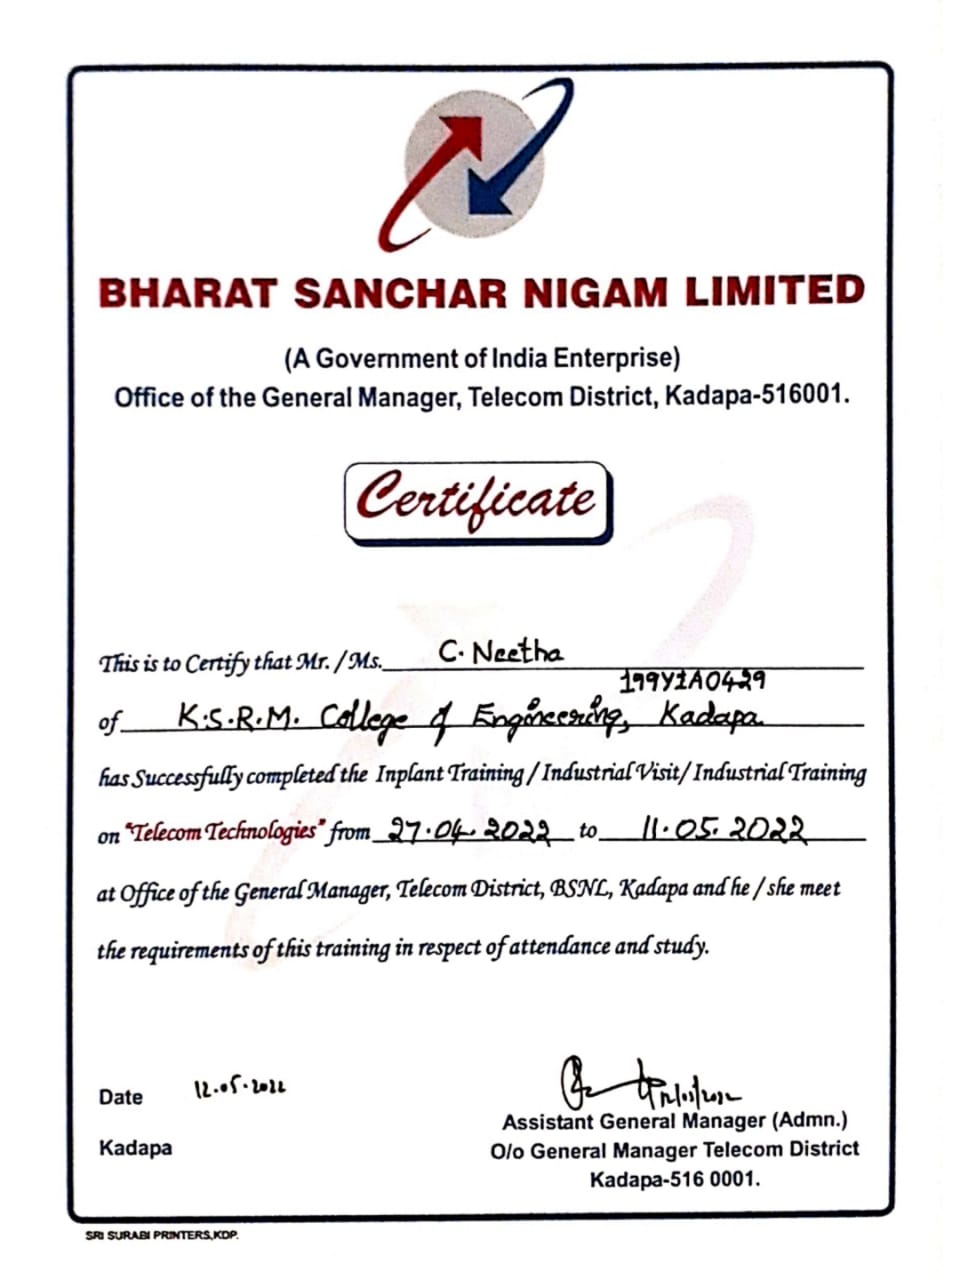 BHARAT SANCHAR NIGAM LIMITED
(A Government of India Enterprise)
Office of the General Manager, Telecom District, Kadapa-516001.
Certificate
This is to Certify that Mr. / Ms. C. Neetha
199Y1A0429
of K.S.R.M. College of Engineering, Kadapa
has Successfully completed the Inplant Training / Industrial Visit / Industrial Training
on "Telecom Technologies" from 27.04.2022 to 11.05.2022
at Office of the General Manager, Telecom District, BSNL, Kadapa and he / she meet
the requirements of this training in respect of attendance and study.
Date 12.05.2022
Kadapa
Assistant General Manager (Admn.)
O/o General Manager Telecom District
Kadapa-516 0001.
SRI SURABI PRINTERS,KDP.